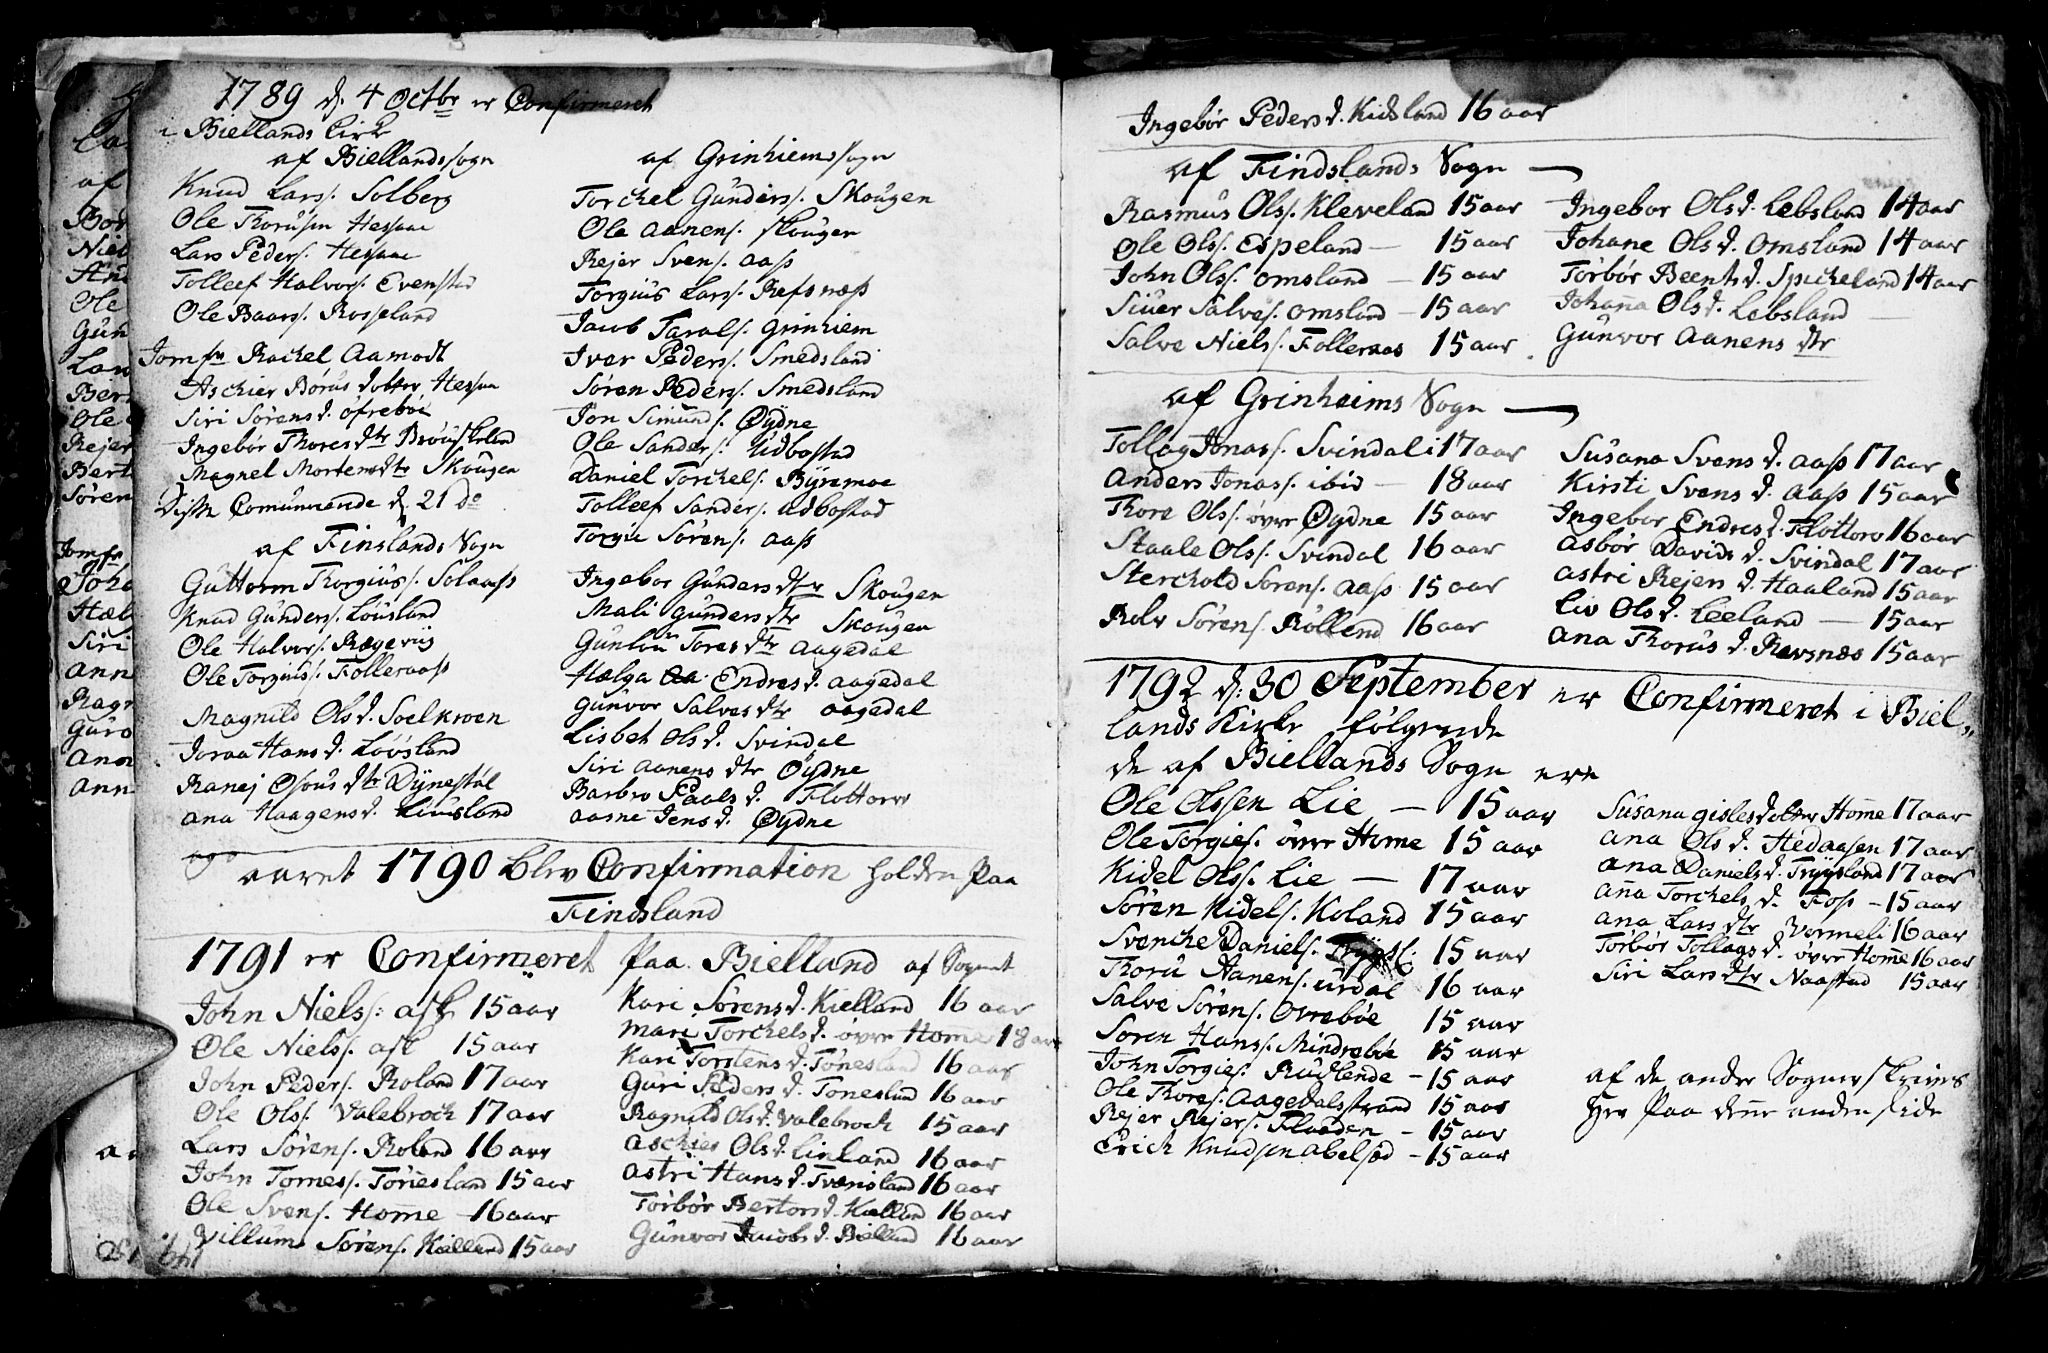 1789 d. 4 Octbr er Confirmeret
i Biellands Kirke
af Biellands sogn
Knud Larss. Solberg
Ole Thorusen Hessaae
Lars Peders. Hessaae
Tolleef Halvors. Evensted
Ole Baarss. Rosseland
Jomfru Rachel Aamodt
Aschier Børus dotter Hessaae
Siri Sørens d. öfrebøe
Ingebør Thores dtr Brøüskeland
Magnel Mortens dtr Skougen
Disse Comunicerede d. 21 do
af Finslands Sogn
Guttorm Thorgiuss. Solaass
Knud Gunders. Löüsland
Ole Halvors. Rægevig
Ole Torgiuss. Folleraass
Magnild Ols d. Soelkroen
Joraa Hans d. Löüsland
Ranej Osous dtr Dÿnestöl
Ana Haagens d. Liüusland
af Grinhiems sogn
Torchel Gunders. Skougen
Ole Aanens. Skougen
Rejer Svens. Aass
Torgius Larss. Refsnæss
Jacob Tarals. Grinhiem
Iver Peders. Smedsland
Søren Peders. Smedsland
Jon Simunds. Øÿdne
Ole Sanders. Udbostad
Daniel Torchels. Bÿremoe
Tolleef Sanders. Udbostad
Torgiu Sørens. Aass
Ingebor Gunders dtr Skougen
Mali Gunders dtr Skougen
Gunlou Tores dtr Aagedal
Hælga Endres d. Aagedal
Gunvor Salves dtr Aagedal
Lisbet Ols d. Svindal
Siri Aanens dtr Øÿdne
Barbro Paals d. Flottorv
Aasne Jens d. Øÿdne
aaret 1790 blev Confirmation holden paa
Findsland
1791 er Confirmeret paa Bielland af Sognet
John Nielss: ask 15 aar
Ole Nielss. ask 15 aar
John Peders. Roland 17 aar
Ole Olss. Valebroch 17 aar
Lars Sørens. Roland 16 aar
John Tomess. Tonesland 15 aar
Ole Svens. Home - 16 aar
Villum Sørens. Kielland 15 aar
Kari Sørens d. Kielland 16 aar
Mari Torchels d. övre Home 18 aar
Kari Torstens d. Tonesland 16 aar
Guri Peders d. Tonesland 16 aar
Ragnild Ols d. Valebroch 15 aar
Aschier Ols d. Linland 16 aar
Astri Hans d. Tvenisland 16 aar
Torbör Bertors d. Kielland 16 aar
Gunvor Jacobs d. Bielland 16 aar
Ingebör Peders d. Kidsland 16 aar
af Findslands Sogn —
Rasmus Olss. Kleveland 15 aar
Ole Olss. Espeland — 15 aar
John Olss. Omsland — 15 aar
Siver Salves. Omsland — 15 aar
Salve Niels s. Folleraas 15 aar
Ingebor Ols d. Lebsland 14 aar
Johane Ols d. Omsland 14 aar
Torbör Beents d. Spicheland 14 aar
Johana Ols d. Lebsland —
Gunvor Aanens dtr
af Grinheims Sogn —
Tollag Jonass. Svindal 17 aar
Anders Jonass. ibid — 18 aar
Thore Olss. övre Øÿdne 15 aar
Staale Olss. Svindal 16 aar
Sterchold Sorens. Aass 15 aar
Rolv Sørens. Röllend 16 aar
Susana Svens d. Aass 17 aar
Kirsti Svens d. Aass 15 aar
Ingebor Endres d. Flottorv 16 aar
Asbör Davids d. Svindal 17 aar
Astri Rejers d. Haaland 15 aar
Liv Ols d. Leeland — 15 aar
Ana Thorus d. Revsnæs 15 aar
1792 d: 30 September er Confirmeret i Biel„
lands Kirke følgende
de af Biellands Sogn ere
Ole Olssen Lie — 15 aar
Ole Torgies. övre Home 15 aar
Kidel Olss. Lie — 17 aar
Sören Kidels. Koland 15 aar
Svenche Daniels. Tryysl: 15 aar
Thoru Aanens. Urdal 16 aar
Salve Sörens. Ovrebøe 15 aar
Soren Hanss. Mindrebøe 15 aar
John Torgies. Rudlende - 15 aar
Ole Thores. Aagedalsstrand 15 aar
Rejer Rejers. Flaaden - 15 aar
Erich Knudsen Abelsød - 15 aar
Susana Gisles dotter Home 17 aar
Ana Ols d. Hedaasen 17 aar
Ana Daniels d. Tryysland 17 aar
Ana Torchels d. Foss - 15 aar
Ana Lars dtr Vermeli 16 aar
Törbör Tollags d. övre Home 16 aar
Siri Lars dtr Naastad 15 aar
af de andre Sogner skrives
her paa dene anden side